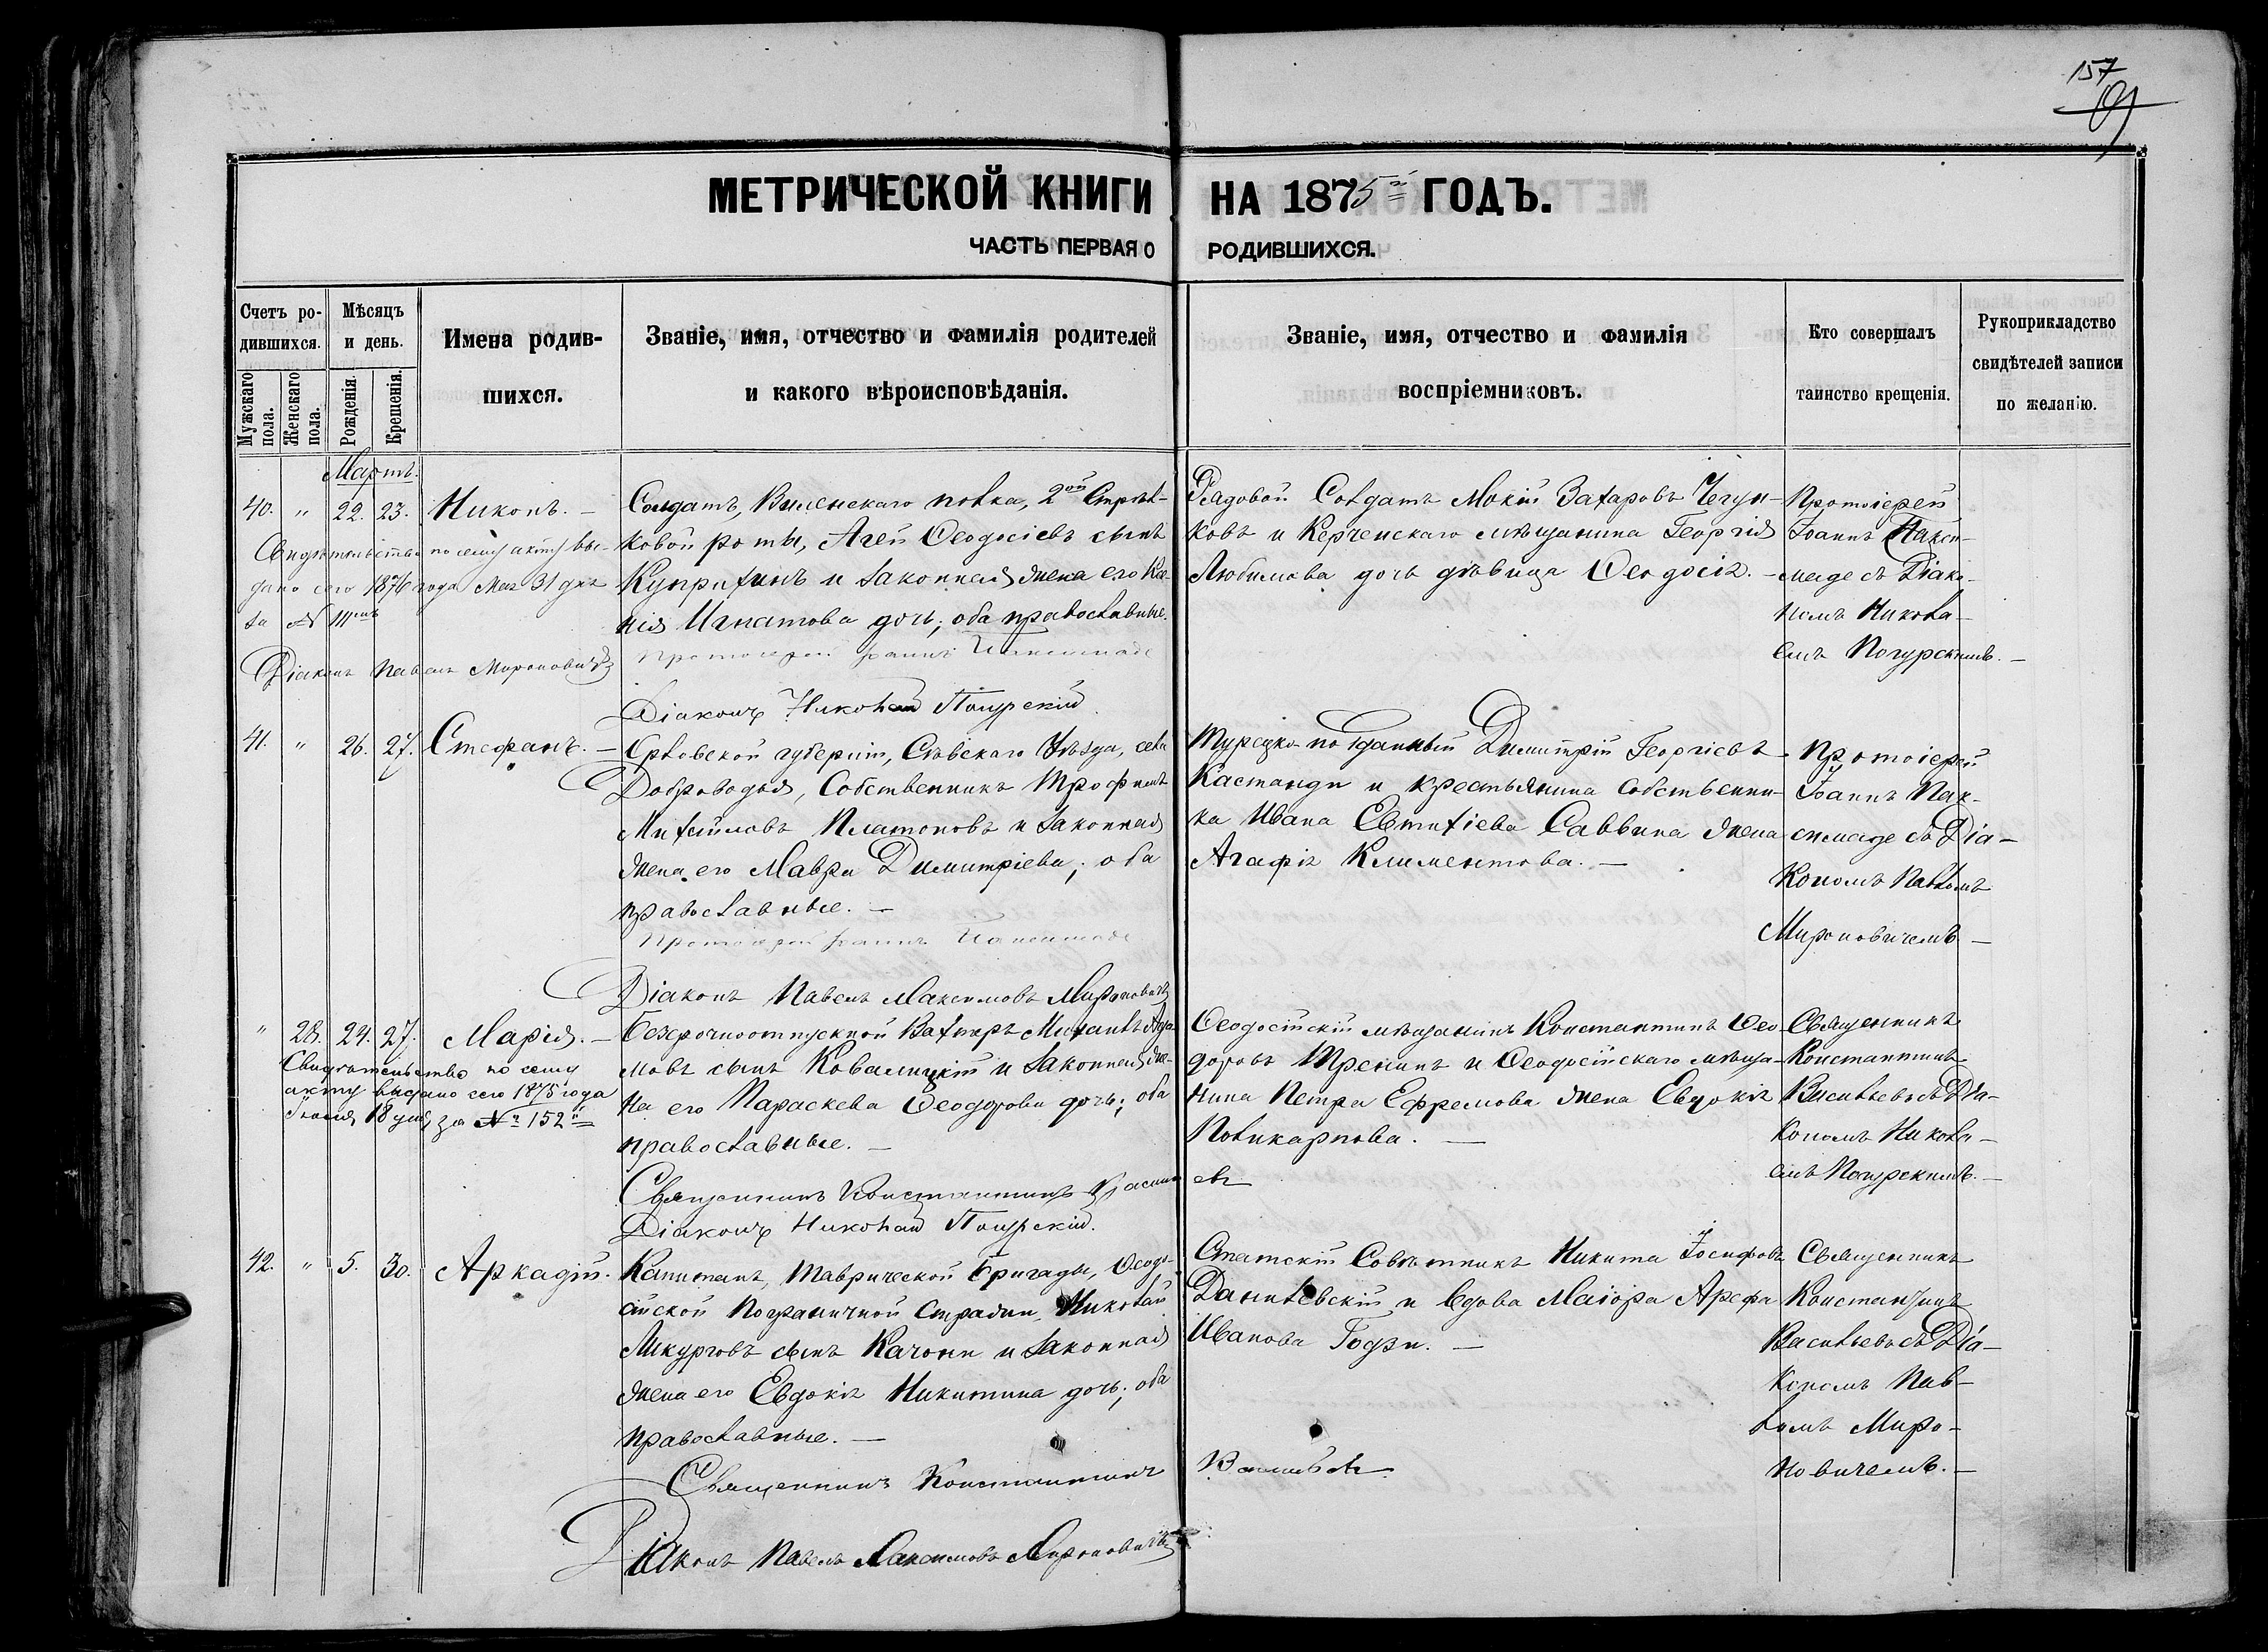 157
МЕТРИЧЕСКОЙ КНИГИ НА 1875й ГОДЪ.
ЧАСТЬ ПЕРВАЯ О РОДИВШИХСЯ.
Счетъ родившихся.
Мужскаго пола.
Женскаго пола.
Мѣсяцъ и день.
Рожденія.
Крещенія.
Имена родив-
шихся.
Званіе, имя, отчество и фамилія родителей
и какого вѣроисповѣданія.
Званіе, имя, отчество и фамилія
воспріемниковъ.
Кто совершалъ
таинство крещенія.
Рукоприкладство
свидѣтелей записи
по желанію.
Мартъ.
40. " 22. 23. Никонъ. —
Солдатъ, Виленскаго полка, 2ой Стрѣл-
ковой роты, Агей Ѳеодосіевъ сынъ
Куприхинъ и законная жена его Ксе-
нія Игнатова дочь; оба православные.
Протоіерей Іоаннъ
Діаконъ Николай Погурскій
Свидѣтельство по сему акту вы-
дано сего 1876 года Мая 31 дня
за № 111мъ
Діаконъ Павелъ Мироновичъ
Рядовой Солдатъ Мокій Захаровъ Чегун-
ковъ и Керченскаго мѣщанина Георгія
Любимова дочь дѣвица Ѳеодосія. —
Протоіерей
Іоаннъ Накси-
маде съ Діако-
номъ Никола-
емъ Погурскимъ. —
41. " 26. 27. Стефанъ. —
Орловской губерніи, Сѣвскаго Уѣзда, села
Доброводья, Собственникъ Трофимъ
Михайловъ Платоновъ и законная
жена его Мавра Димитріева; оба
православные. —
Протоіерей Іоаннъ
Діаконъ Павелъ Максимовъ Мироновичъ
Турецко-подданный Димитрій Георгіевъ
Кастанди и крестьянина собственни-
ка Ивана Евтихіева Саввина жена
Агафія Климентова. —
Протоіерей
Іоаннъ Нак-
симаде съ Діа-
кономъ Павломъ
Мироновичемъ —
" 28. 24. 27. Марія. —
Безсрочноотпускной Вахтеръ Михаилъ Ада-
мовъ сынъ Ковалицкій и законная же-
на его Параскева Ѳеодорова дочь; оба
православные. —
Священникъ Константинъ Васильевъ
Діаконъ Николай Погурскій.
Свидѣтельство по сему
акту выдано сего 1875 года
Іюня 18 дня за № 152й
Ѳеодосійскій мѣщанинъ Константинъ Ѳео-
доровъ Тренинъ и Ѳеодосійскаго мѣща-
нина Петра Ефремова жена Евдокія
Поликарпова. —
Священникъ
Константинъ
Васильевъ съ Діа-
кономъ Никола-
емъ Погурскимъ. —
42. " 5. 30. Аркадій.
Капитанъ, Таврической Бригады, Ѳеодо-
сійской Пограничной Стражи, Николай
Ликурговъ сынъ Качони и законная
жена его Евдокія Никитина дочь; оба
православные. —
Священникъ Константинъ Васильевъ
Діаконъ Павелъ Максимовъ Мироновичъ
Статскій Совѣтникъ Никита Іосифовъ
Данилевскій и вдова Маіора Арефа
Иванова Годзи. —
Священникъ
Константинъ
Васильевъ съ Діа-
кономъ Пав-
ломъ Миро-
новичемъ. —